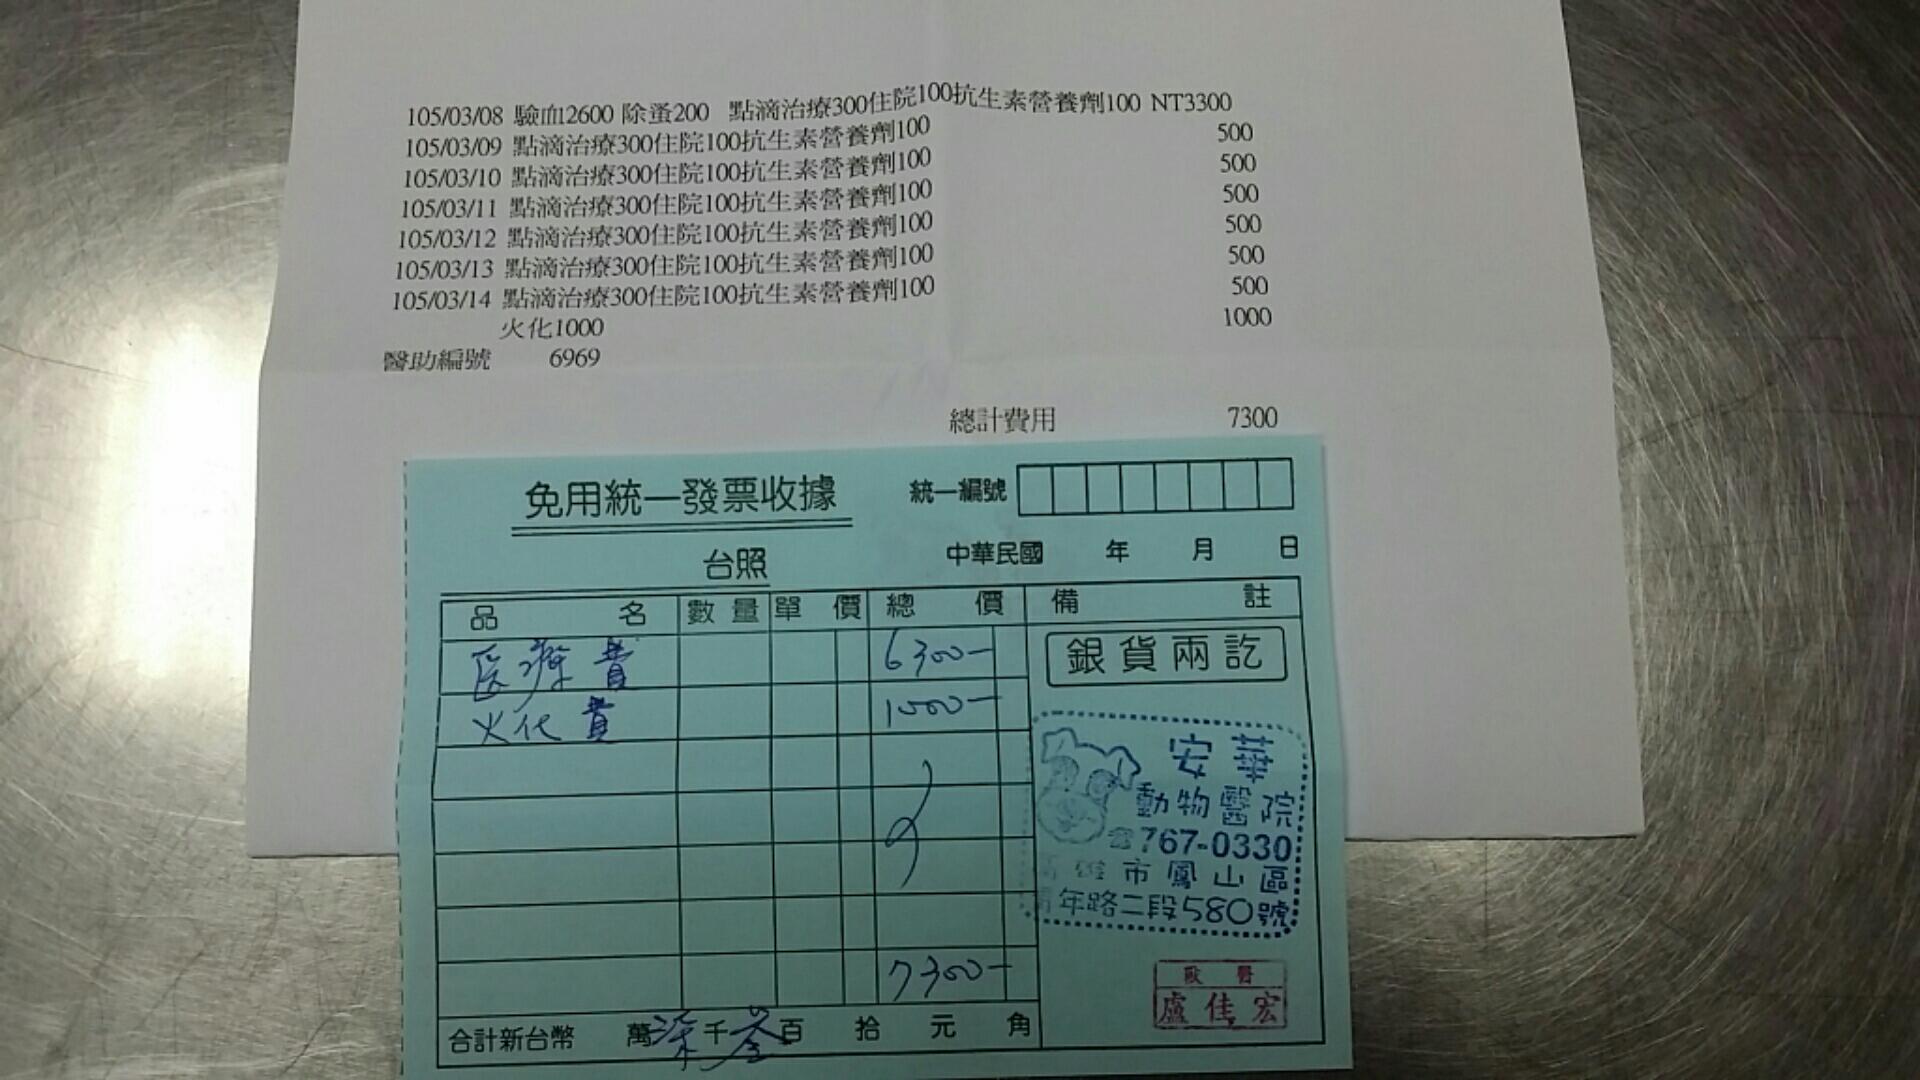 105/03/08 驗血2600 除蚤200 點滴治療300住院100抗生素營養劑100 NT3300
105/03/09 點滴治療300住院100抗生素營養劑100 500
105/03/10 點滴治療300住院100抗生素營養劑100 500
105/03/11 點滴治療300住院100抗生素營養劑100 500
105/03/12 點滴治療300住院100抗生素營養劑100 500
105/03/13 點滴治療300住院100抗生素營養劑100 500
105/03/14 點滴治療300住院100抗生素營養劑100 500
火化1000 1000
醫助編號 6969
總計費用 7300
免用統一發票收據 統一編號
台照 中華民國 年 月 日
品名 數量 單價 總價 備註
医療費 6300-
銀貨兩訖
火化費 1000-
安華
動物醫院
☎767-0330
高雄市鳳山區
青年路二段580號
7300-
獸醫
盧佳宏
合計新台幣 萬柒千叁百拾元角